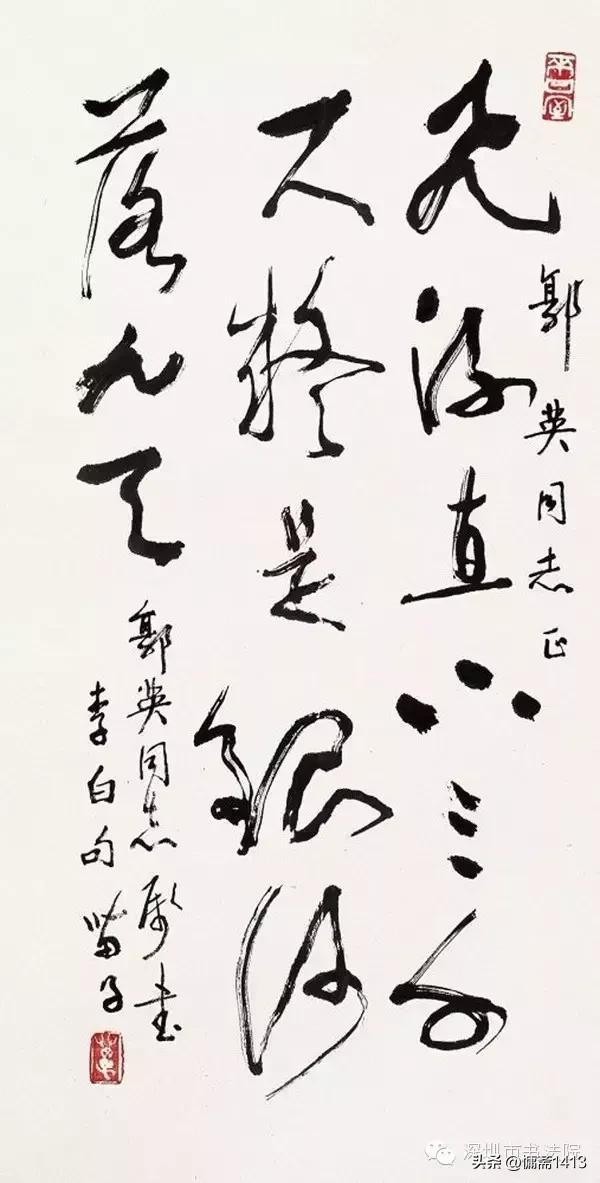 郭英同志正
飛流直下三千
尺疑是銀河
落九天
郭英同志属书
李白句 苗子
深圳市书法院
头条@慵斋1413